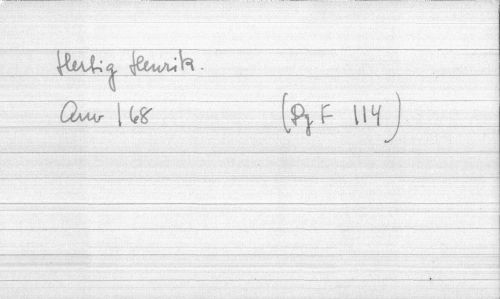 Hertig Henrik.
Anv 168 (Dg F 114)